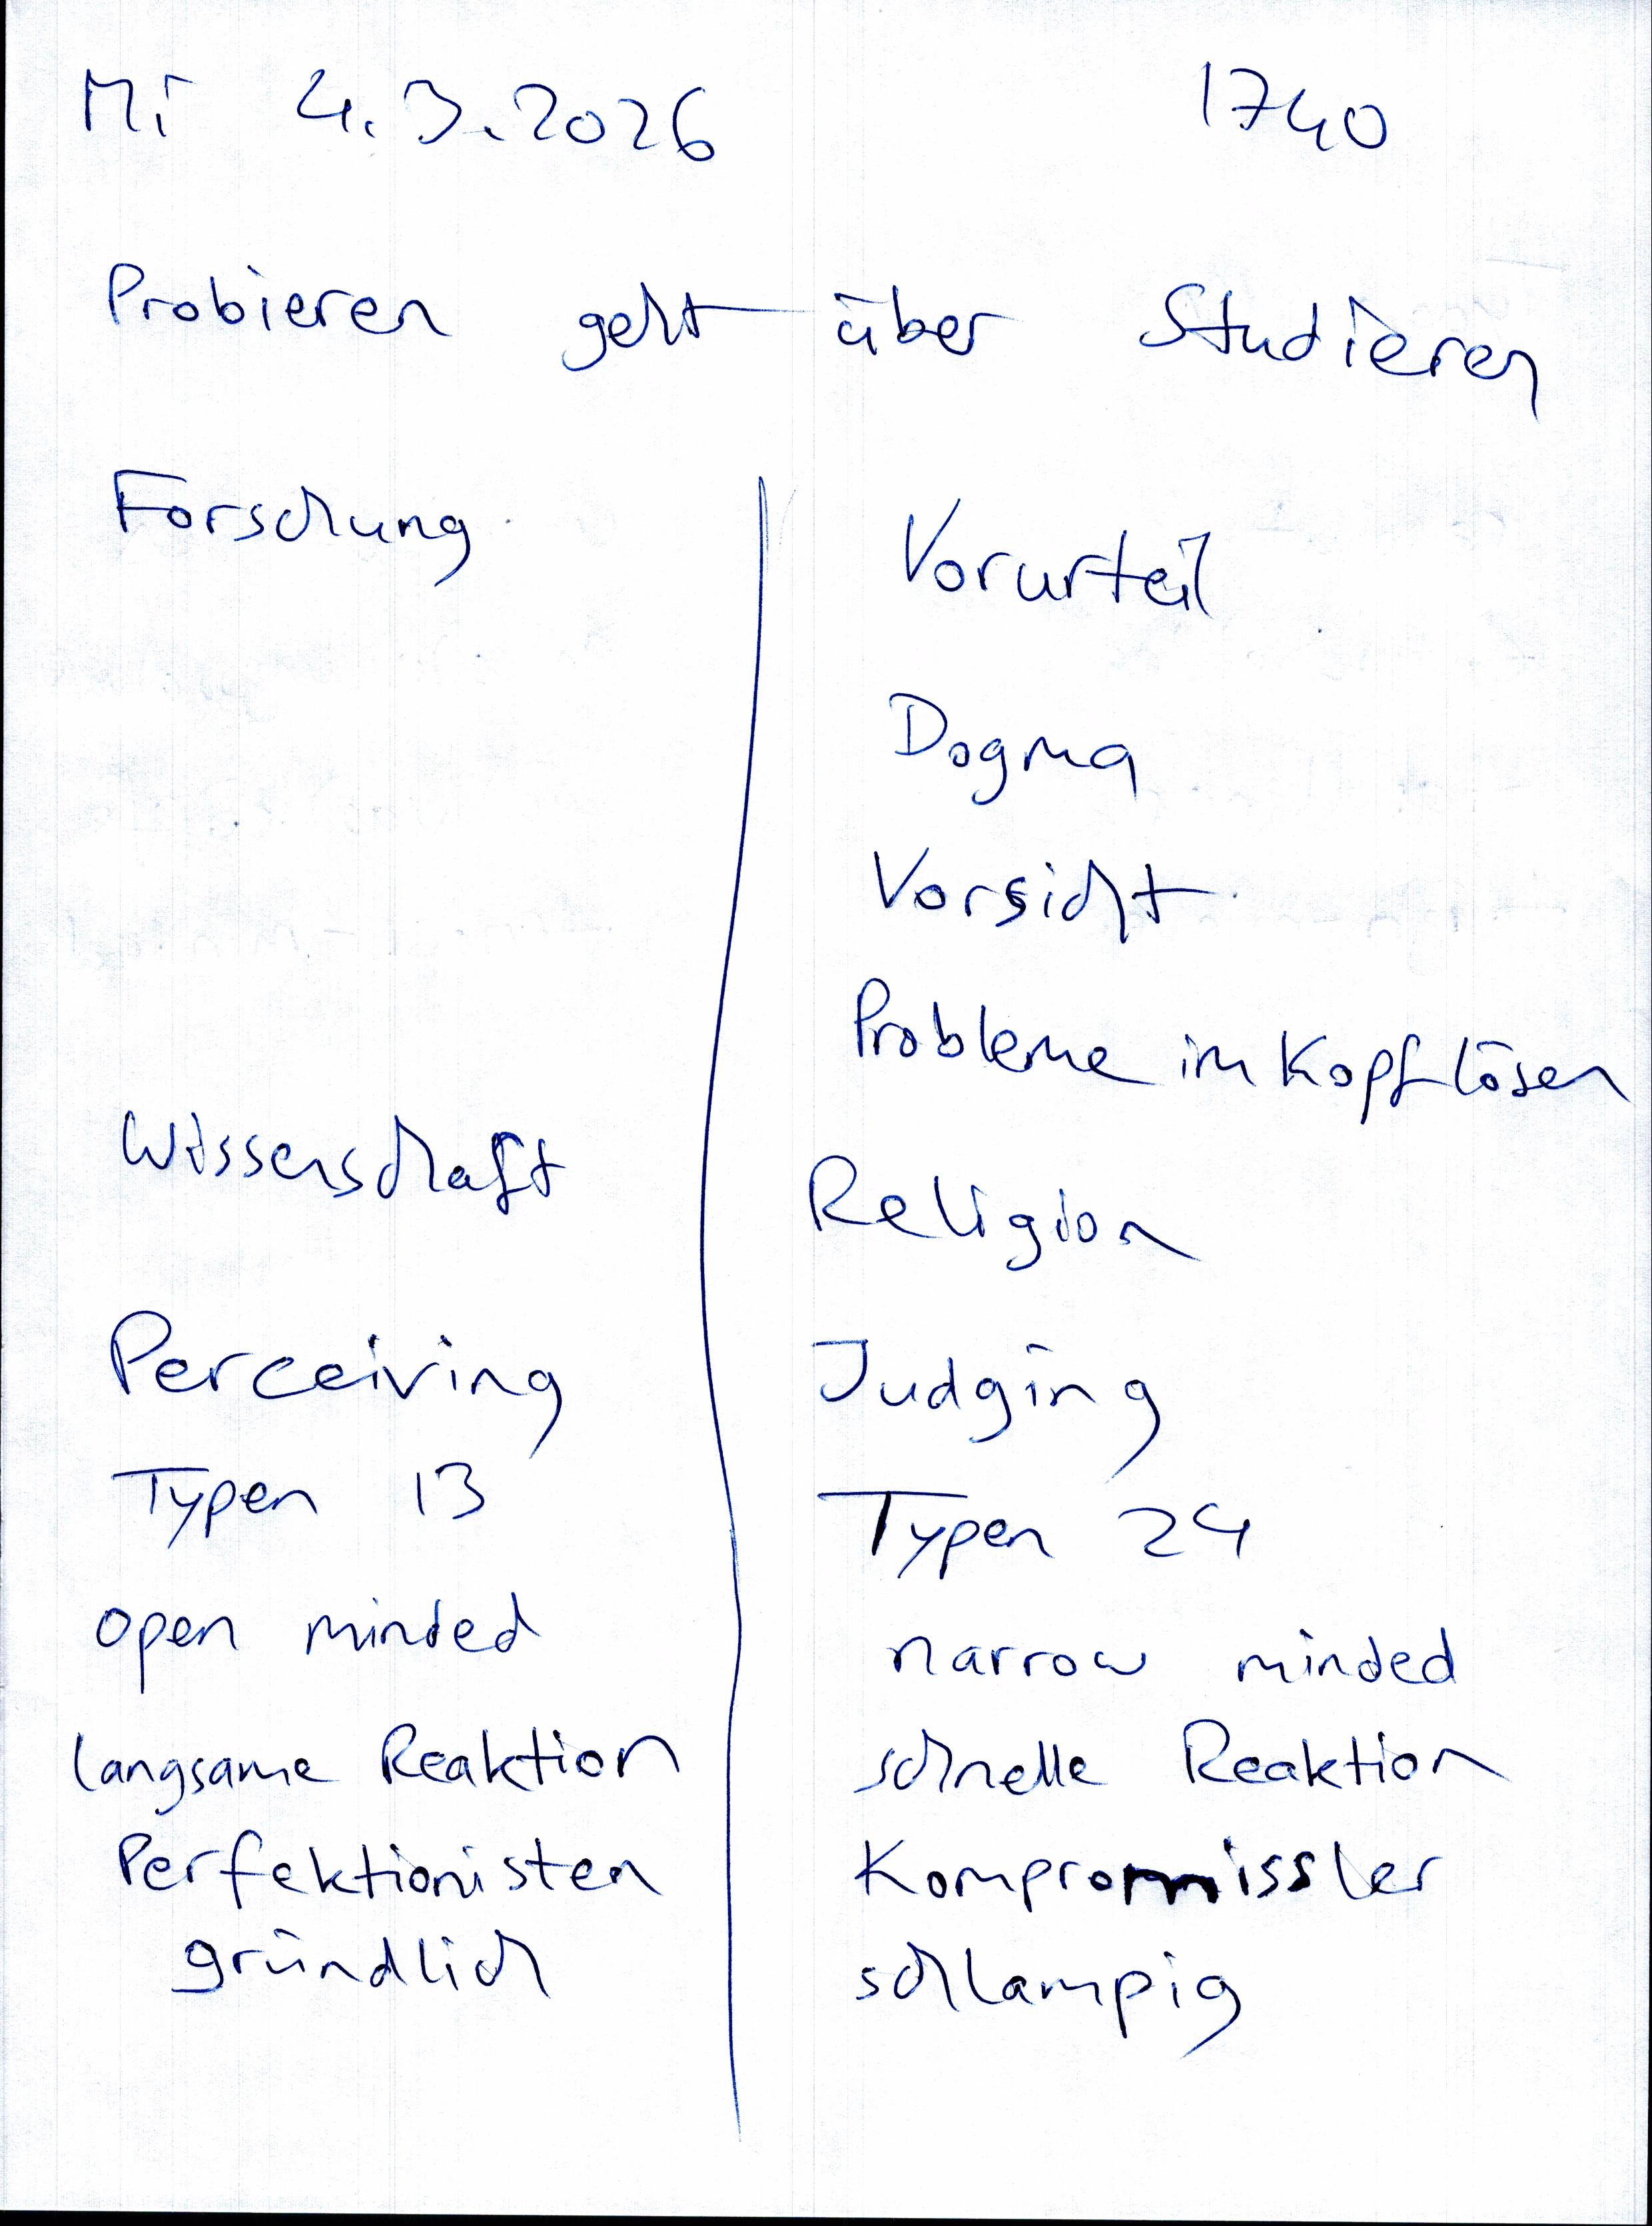 Mi 4.3.2026 1740
Probieren geht über Studieren
Forschung
Vorurteil
Dogma
Vorsicht
Probleme im Kopf lösen
Wissenschaft
Religion
Perceiving Judging
Typen 13 Typen 24
open minded narrow minded
langsame Reaktion schnelle Reaktion
Perfektionisten Kompromissler
gründlich schlampig